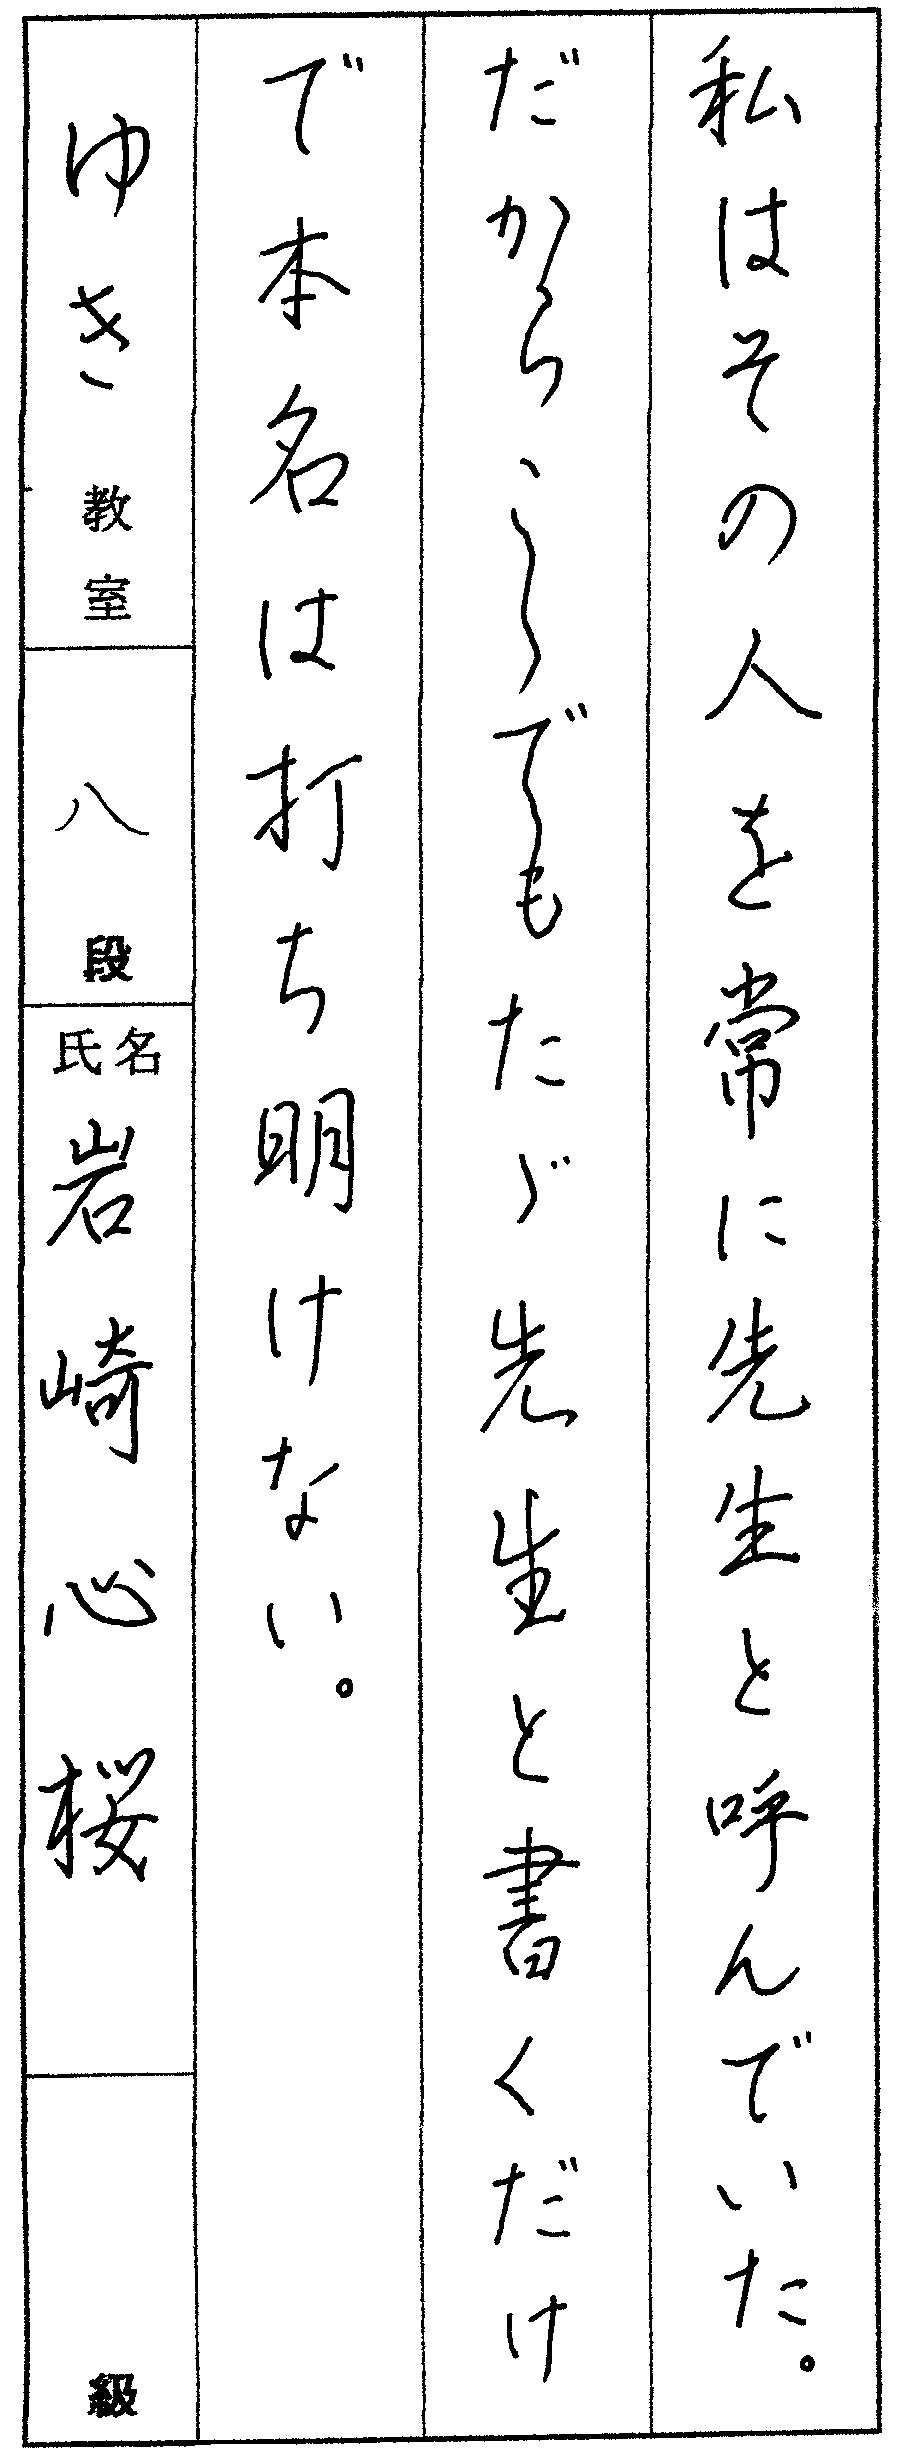 私はその人を常に先生と呼んでいた。
だからこゝでもたゞ先生と書くだけ
で本名は打ち明けない。
ゆき教室
八段
氏名 岩崎心桜
級